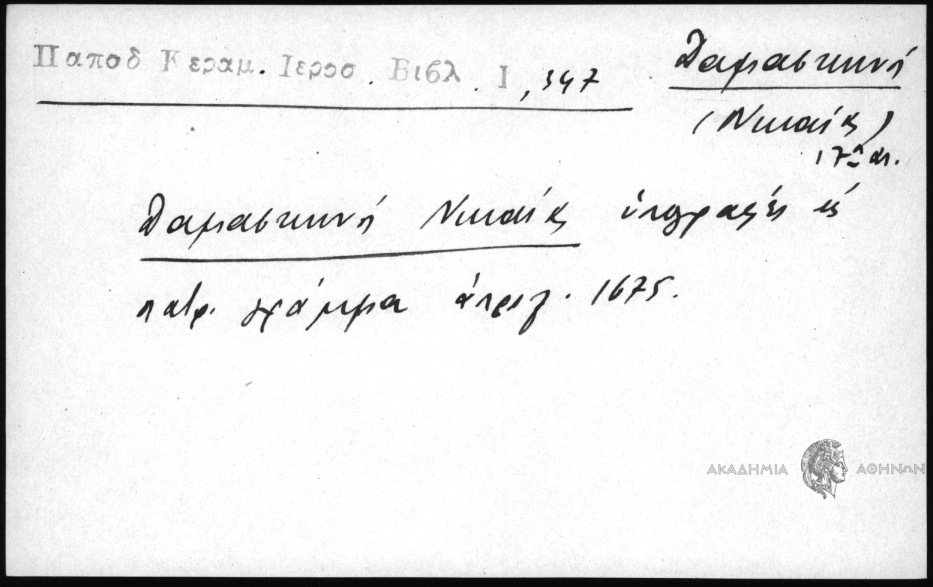 Παποδ Κεραμ. Ιεροσ. Βιβλ. I, 347
Δαμασκηνὸς
(Νικαίας)
17ος αι.
Δαμασκηνὸς Νικαίας ὑπογράφει εἰς
πατρ. γράμμα ἀπριλ. 1675.
ΑΚΑΔΗΜΙΑ ΑΘΗΝΩΝ